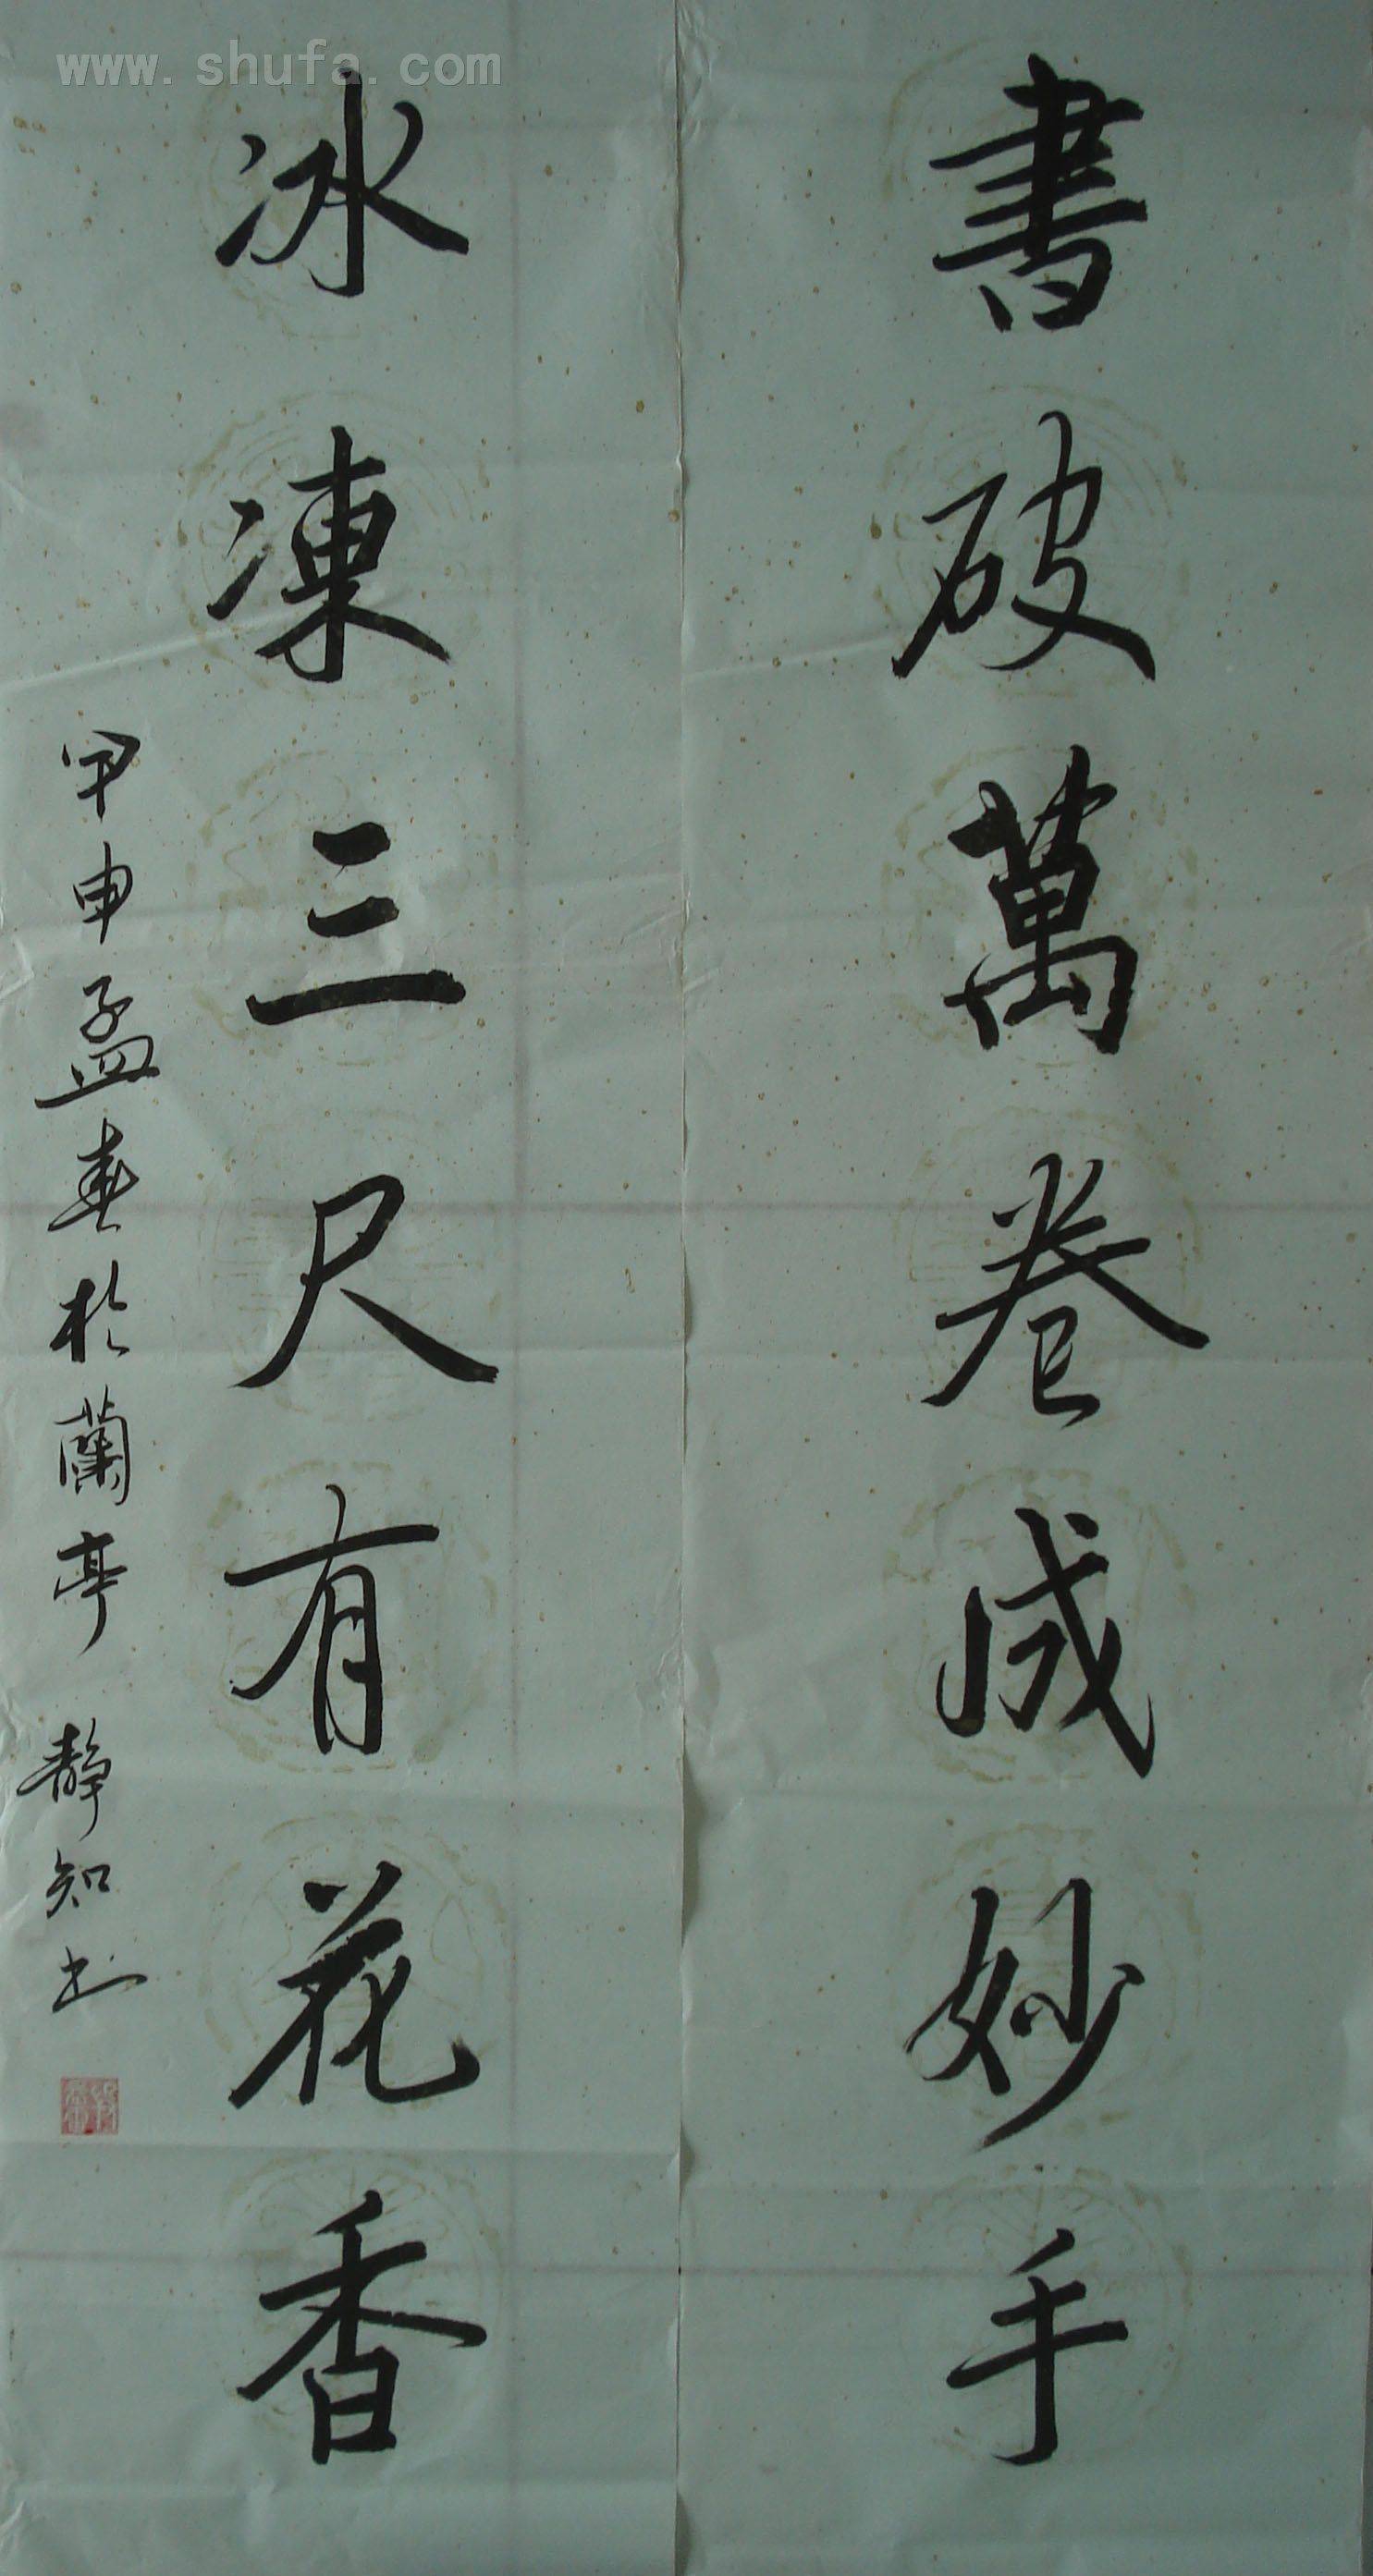 www.shufa.com
書破萬卷成妙手
冰凍三尺有花香
甲申孟春於蘭亭 靜知书